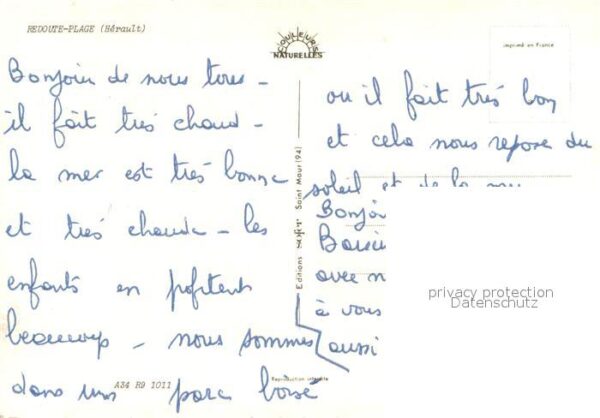 REDOUTE-PLAGE (Hérault)
COULEURS
NATURELLES
imprimé en France
Bonjour de nous tous -
il fait très chaud -
la mer est très bonne
et très chaude - les
enfants en profitent
beaucoup - nous sommes
dans un parc boisé
où il fait très bon
et cela nous repose du
soleil et de la
Bonjo
avec n
à vous
aussi
Editions
Saint Maur (94)
privacy protection
Datenschutz
A34 R9 1011
Reproduction interdite